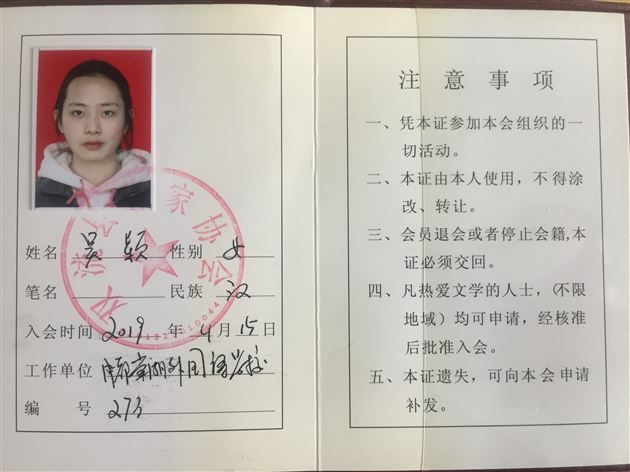 姓名 吴颖 性别 女
笔名 民族 汉
入会时间 2019 年 4 月 15 日
工作单位 外国语学校
编 号 273
家协会
注 意 事 项
一、凭本证参加本会组织的一
切活动。
二、本证由本人使用，不得涂
改、转让。
三、会员退会或者停止会籍,本
证必须交回。
四、凡热爱文学的人士，(不限
地域）均可申请，经核准
后批准入会。
五、本证遗失，可向本会申请
补发。